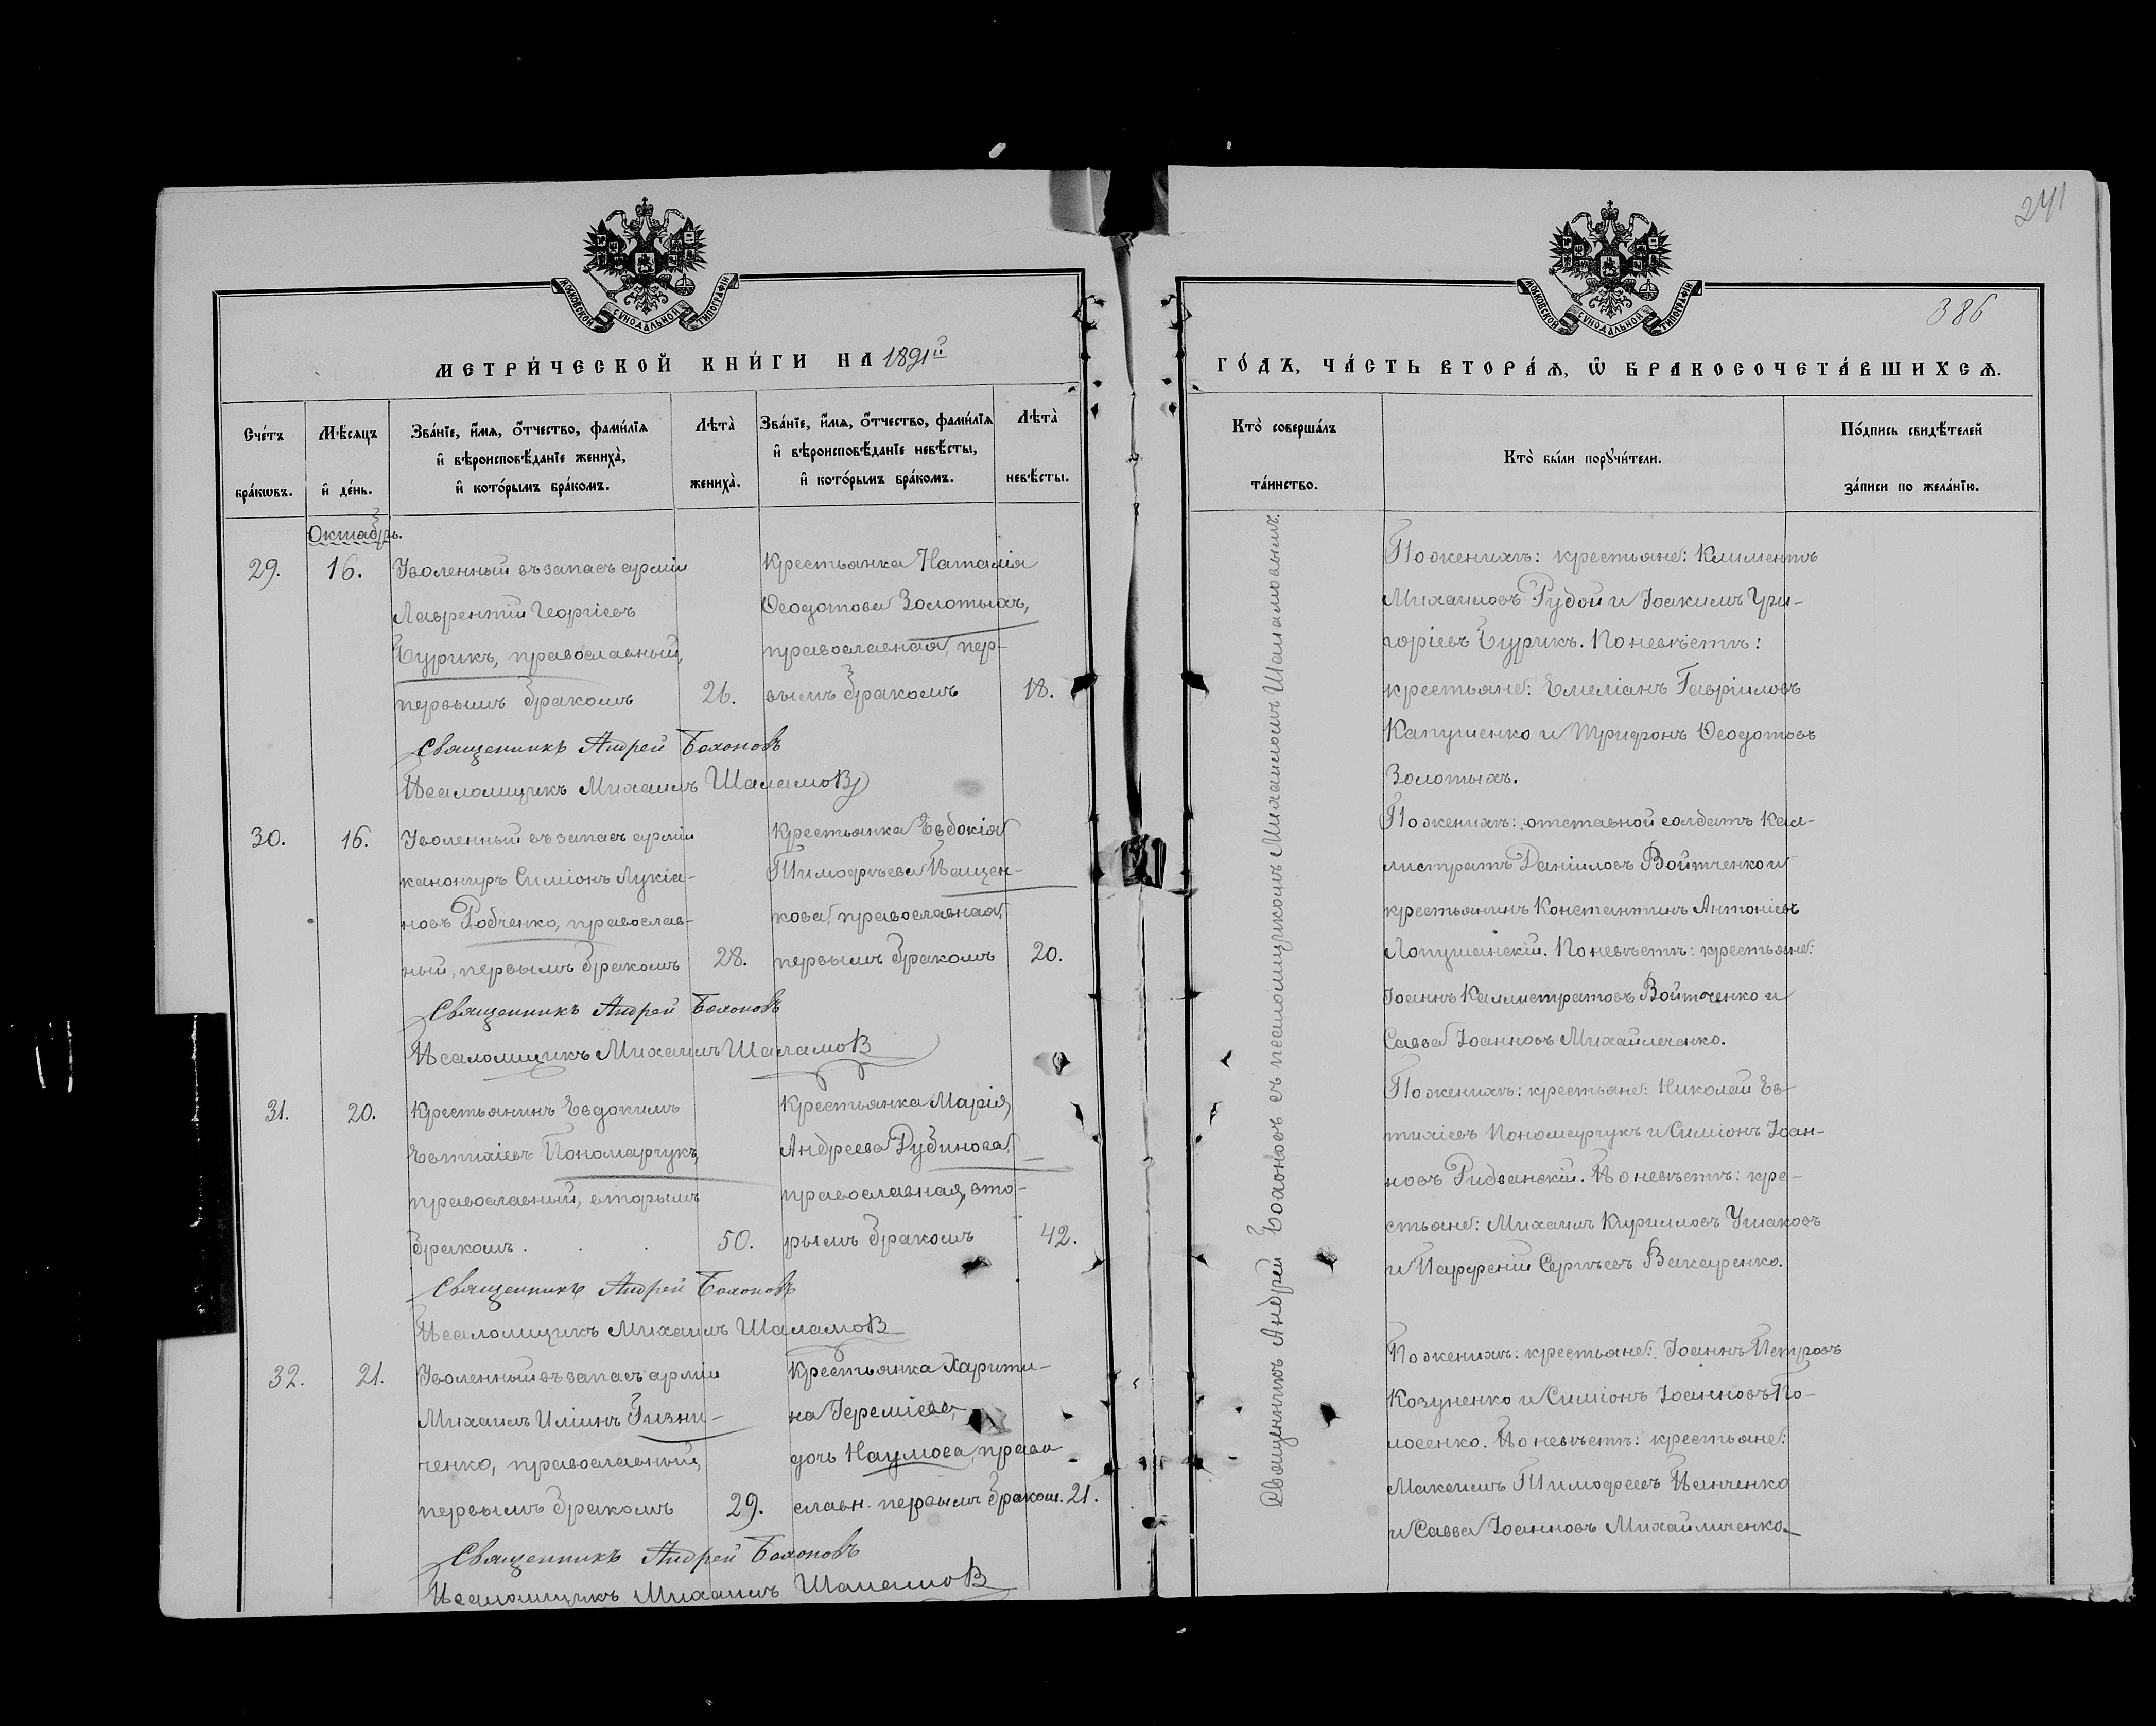 241
МОСКОВСКОЙ СѴНОДАЛЬНОЙ ТИПОГРАФІИ
МЕТРИ́ЧЕСКОЙ КНИ́ГИ НА 1891й
Сче́тъ бра́ковъ.
Мѣ́сяцъ и де́нь.
Зва́нїе, и́мя, о́тчество, фами́лїя
и вѣроисповѣ́данїе жениха̀,
и кото́рымъ бра́комъ.
Лѣта̀ жениха̀.
Зва́нїе, и́мя, о́тчество, фами́лїя
и вѣроисповѣ́данїе невѣ́сты,
и кото́рымъ бра́комъ.
Лѣта̀ невѣ́сты.
Октябрь.
29. 16.
Уволенный въ запасъ арміи
Лаврентій Георгіевъ
Бурикъ, православный,
первымъ бракомъ 26.
Крестьянка Наталія
Ѳеодотова Золотыхъ,
православная, пер-
вымъ бракомъ 18.
Священникъ Андрей Бахоновъ
Псаломщикъ Михаилъ Шаламовъ
30. 16.
Уволенный въ запасъ арміи
канониръ Симіонъ Лукіа-
новъ Рябченко, православ-
ный, первымъ бракомъ 28.
Крестьянка Евдокія
Тимофѣева Пащен-
кова, православная,
первымъ бракомъ 20.
Священникъ Андрей Бахоновъ
Псаломщикъ Михаилъ Шаламовъ
31. 20.
Крестьянинъ Евдокимъ
Евтихіевъ Пономарчукъ,
православный, вторымъ
бракомъ . . . 50.
Крестьянка Марія
Андреева Рубинова,
православная, вто-
рымъ бракомъ 42.
Священникъ Андрей Бахоновъ
Псаломщикъ Михаилъ Шаламовъ
32. 21.
Уволенный въ запасъ арміи
Михаилъ Иліинъ Гизни-
ченко, православный,
первымъ бракомъ 29.
Крестьянка Харити-
на Іереміева,
дочь Наумова, право
славн. первымъ браком. 21.
Священникъ Андрей Бахоновъ
Псаломщикъ Михаилъ Шаламовъ
МОСКОВСКОЙ СѴНОДАЛЬНОЙ ТИПОГРАФІИ
386
ГО́ДЪ, ЧА́СТЬ ВТОРА́Я, Ѿ БРАКОСОЧЕТА́ВШИХСЯ.
Кто̀ соверша́лъ та́инство.
Кто̀ бы́ли поручи́тели.
По́дпись свидѣ́телей за́писи по жела́нїю.
Священникъ Андрей Бахоновъ съ псаломщикомъ Михаиломъ Шаламовымъ.
По женихѣ: крестьяне: Климентъ
Михаиловъ Рудой и Іоакимъ Гри-
горіевъ Бурикъ. По невѣстѣ:
крестьяне: Емеліанъ Гавріиловъ
Капушенко и Трифонъ Ѳеодотовъ
Золотыхъ.
По женихѣ: отставной солдатъ Кал-
листратъ Даніиловъ Войтченко и
крестьянинъ Константинъ Антоніевъ
Лопушанскій. По невѣстѣ: крестьяне:
Іоаннъ Каллистратовъ Войтченко и
Савва Іоанновъ Михайличенко.
По женихѣ: крестьяне: Николай Ев-
тихіевъ Пономарчукъ и Симіонъ Іоан-
новъ Ридванскій. По невѣстѣ: кре-
стьяне: Михаилъ Кирилловъ Ушаковъ
и Парфеній Сергѣевъ Вакаренко.
По женихѣ: крестьяне: Іоаннъ Петровъ
Козуненко и Симіонъ Іоанновъ По-
лосенко. По невѣстѣ: крестьяне:
Максимъ Тимофеевъ Панченко
и Савва Іоанновъ Михайличенко.